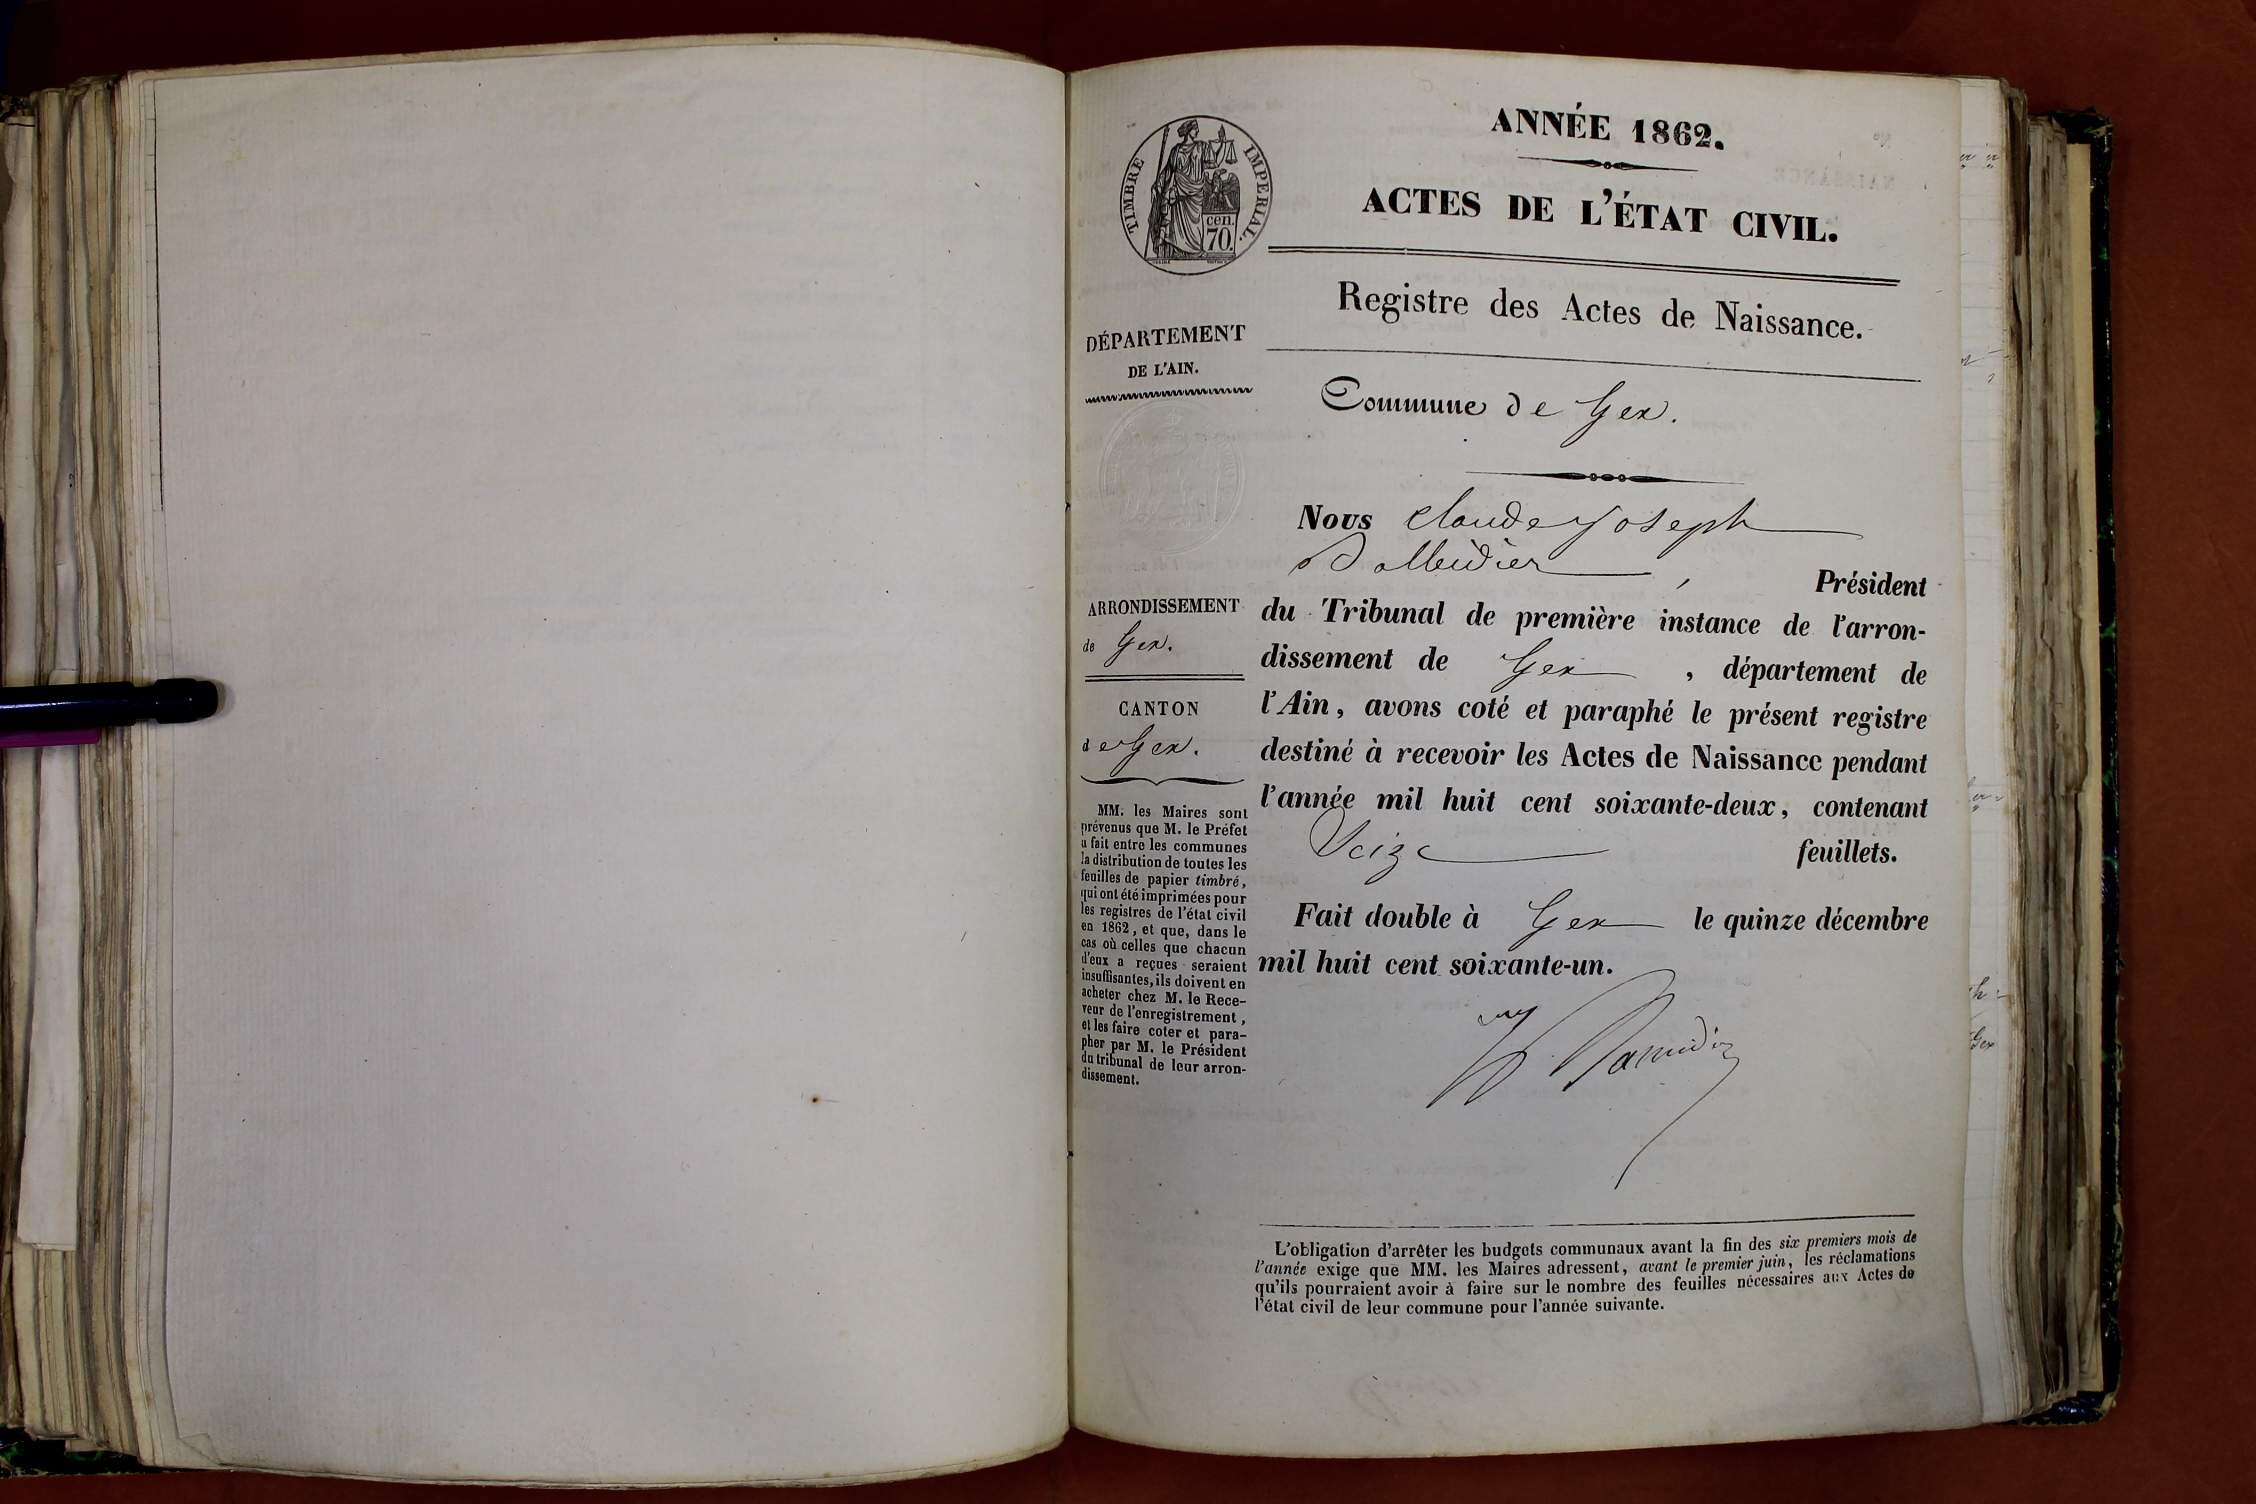 ANNÉE 1862.
ACTES DE L'ÉTAT CIVIL.
TIMBRE IMPERIAL.
cen.
70.
Registre des Actes de Naissance.
DÉPARTEMENT
DE L'AIN.
Commune de Gex.
Nous Claude Joseph
, Président
du Tribunal de première instance de l'arron-
dissement de Gex , département de
l'Ain, avons coté et paraphé le présent registre
destiné à recevoir les Actes de Naissance pendant
l'année mil huit cent soixante-deux, contenant
Seize feuillets.
Fait double à Gex le quinze décembre
mil huit cent soixante-un.
ARRONDISSEMENT
de Gex.
CANTON
de Gex.
MM. les Maires sont
prévenus que M. le Préfet
a fait entre les communes
la distribution de toutes les
feuilles de papier timbré,
qui ont été imprimées pour
les registres de l'état civil
en 1862, et que, dans le
cas où celles que chacun
d'eux a reçues seraient
insuffisantes, ils doivent en
acheter chez M. le Rece-
veur de l'enregistrement,
et les faire coter et para-
pher par M. le Président
du tribunal de leur arron-
dissement.
L'obligation d'arrêter les budgets communaux avant la fin des six premiers mois de
l'année exige que MM. les Maires adressent, avant le premier juin, les réclamations
qu'ils pourraient avoir à faire sur le nombre des feuilles nécessaires aux Actes de
l'état civil de leur commune pour l'année suivante.